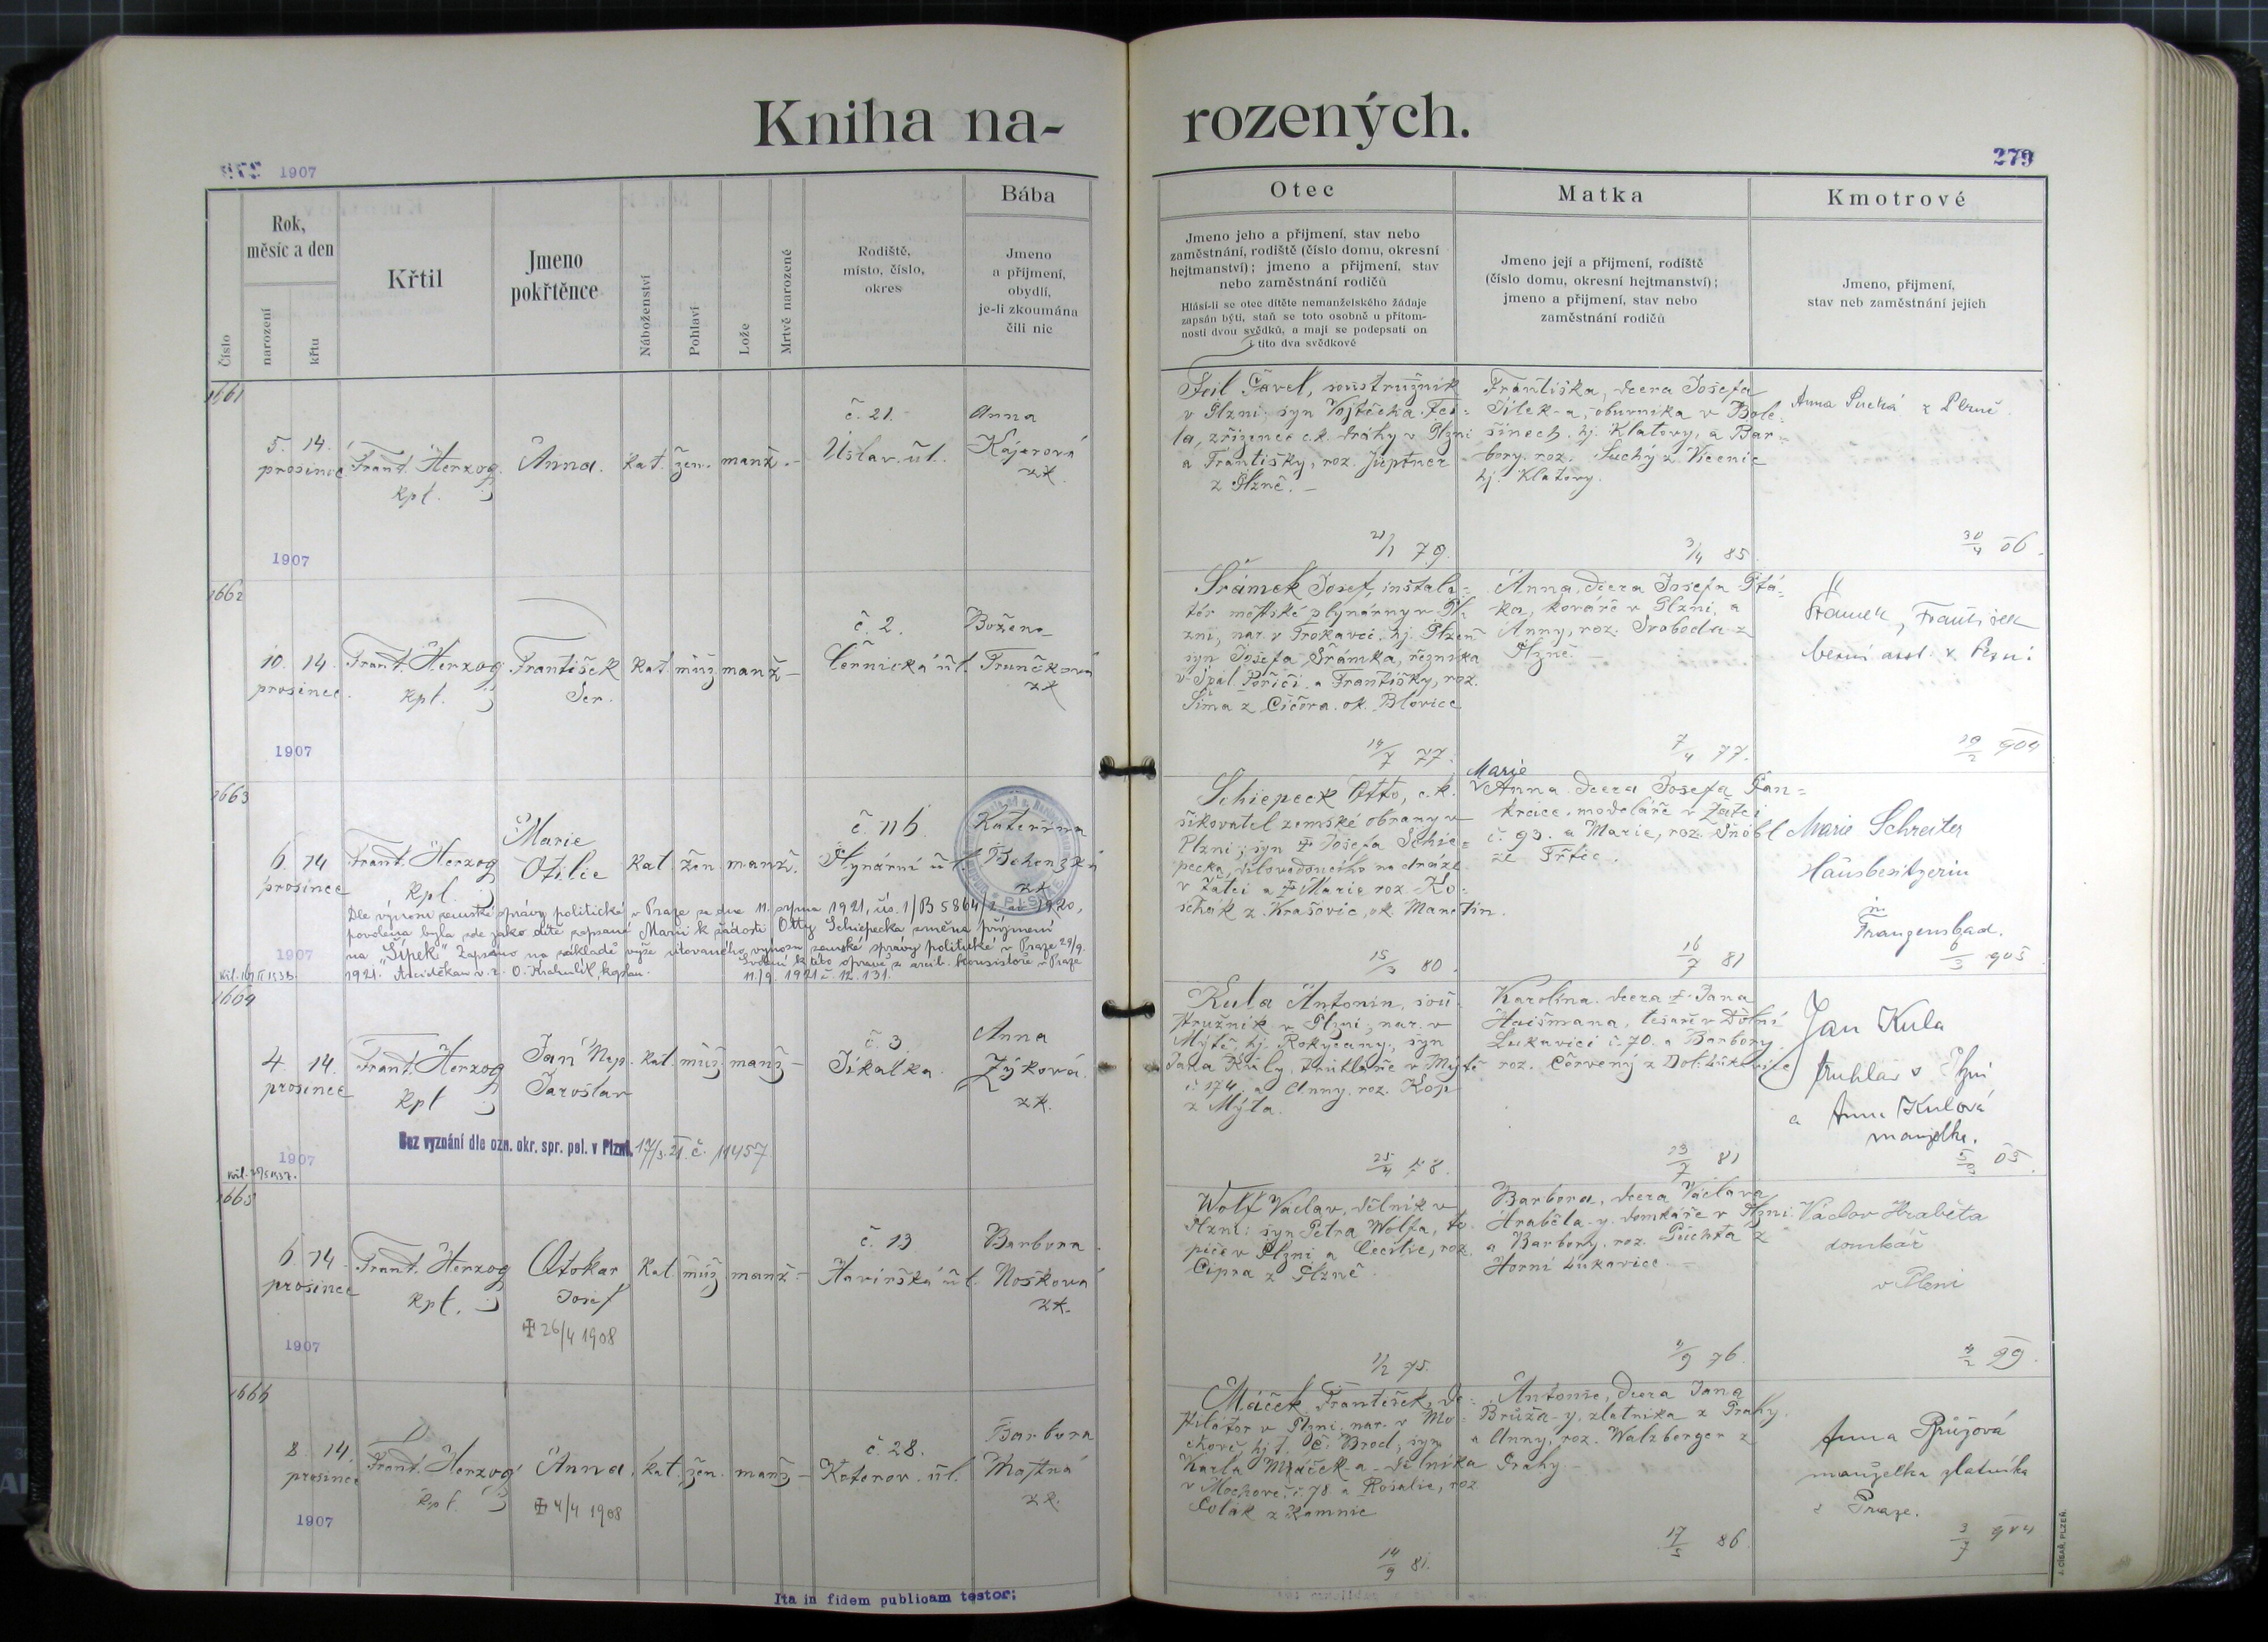 Kniha na-
rozených.
1907
279
Číslo
Rok,
měsíc a den
narození
křtu
Křtil
Jmeno
pokřtěnce
Náboženství
Pohlaví
Lože
Mrtvě narozené
Rodiště,
místo, číslo,
okres
Bába
Jmeno
a příjmení,
obydlí,
je-li zkoumána
čili nic
Otec
Jmeno jeho a příjmení, stav nebo
zaměstnání, rodiště (číslo domu, okresní
hejtmanství); jmeno a příjmení, stav
nebo zaměstnání rodičů
Hlásí-li se otec dítěte nemanželského žádaje
zapsán býti, staň se toto osobně u přítom-
nosti dvou svědků, a mají se podepsati on
i tito dva svědkové
Matka
Jmeno její a příjmení, rodiště
(číslo domu, okresní hejtmanství);
jmeno a příjmení, stav nebo
zaměstnání rodičů
Kmotrové
Jmeno, příjmení,
stav neb zaměstnání jejich
1661
5. 14.
prosince
1907
Frant. Herzog
kpl.
Anna.
kat. žen. manž. -
č. 21.
Úslav. ul.
Anna
Kájerová
zk.
Feil Pavel, soustružník
v Plzni, syn Vojtěcha Fei-
la, zřízence c.k. dráhy v Plzni
a Františky, roz. Jüptner
z Plzně. -
21/1 79.
Františka, dcera Josefa
Šilek-a, obuvníka v Bole-
šinech, hj. Klatovy, a Bar-
bory roz. Suchý z Vícenic
hj. Klatovy.
3/4 85.
Anna Suchá z Plzně.
30/4 06.
1662
10. 14.
prosince.
1907
Frant. Herzog
kpl.
František
Ser.
kat. muž. manž -
č. 2.
Černická ul.
Božena
Trunčková
zk
Šrámek Josef, instala-
tér městské plynárny v Pl-
zni, nar. v Trokavci, hj. Plzeň
syn Josefa Šrámka, řezníka
v Spál. Poříčí a Františky, roz.
Šíma z Čičova. ok. Blovice
14/7 77.
Anna, dcera Josefa Ptá-
ka, kováře v Plzni, a
Anny, roz. Svoboda z
Plzně. -
7/4 77.
Šrámek, František
berní asst. v Plzni
19/2 904
1663
6. 14
prosince
1907
Frant. Herzog
kpl.
Marie
Otilie
kat žen. manž.
č. 116.
Plynární ul.
Kateřina
zk
Dle výnosu zemské správy politické v Praze ze dne 11. srpna 1921, čís. 1/B 5864/1 ai 1920,
povolena byla zde jako dítě zapsané Marii k žádosti Otty Schiepecka změna příjmení
na "Šípek". Zapsáno na základě výše citovaného výnosu zemské správy politické v Praze 29/9.
1921. Arciděkan v. z. O. Krahulík, kaplan.
Svolení k této opravě z arcib. konsistoře v Praze
11./9. 1921 č. 12.131.
Schiepeck Otto, c.k.
šikovatel zemské obrany v
Plzni; syn † Josefa Schie-
pecka, vlakvedoucího na dráze
v Žatci a † Marie roz. Ko-
schak z Krašovic, ok. Manetín.
15/3 80.
Marie
Anna dcera Josefa Pan-
kráce, modeláře v Žatci
č. 93. a Marie, roz. Šnobl
ze Třtic.
16/7 81
Marie Schreiter
Hausbesitzerin
in
Franzensbad.
6/3 905
1664
4. 14.
prosince
1907
Frant. Herzog
kpl
Jan Nep.
Jaroslav
kat. muž. manž -
č. 3
Sikalka.
Anna
Zýková.
zk.
Bez vyznání dle ozn. okr. spr. pol. v Plzni. 17/3. 21. č. 11457
Kula Antonín, sou-
stružník v Plzni, nar. v
Mýtě, hj. Rokycany, syn
Jana Kuly, truhláře v Mýtě
č. 174, a Anny, roz. Kop
z Mýta.
25/4 78.
Karolina. dcera † Jana
Haišmana, tesaře v Dolní
Lukavici č. 70. a Barbory,
roz. Červený z Dol. Lukavice
23/7 81
Jan Kula
truhlář v Plzni
a Anna Kulová
manželka.
5/9 05.
1665
6. 14.
prosince
1907
Frant. Herzog
kpl.
Otokar
Josef
✠ 26/4 1908
kat. muž. manž -
č. 13
Havířská ul.
Barbora
Nosková
zk.
Wolf Václav, dělník v
Plzni: syn Petra Wolfa, to-
piče v Plzni a Cecilie, roz.
Cipra z Plzně.
1/2 75.
Barbora, dcera Václava
Hraběta-y, domkáře v Plzni
a Barbory, roz. Puchta z
Horní Lukavice. -
4/9 76.
Václav Hraběta
domkář
v Plzni
4/2 99.
1666
8. 14.
prosince
1907
Frant. Herzog
kpl.
Anna.
✠ 4/4 1908
kat. žen. manž -
č. 28.
Koterov. ul.
Barbora
Majtná
zk.
Máček František, de-
stilátor v Plzni, nar. v Mo-
chově, hj. Č. Brod, syn
Karla Máček-a, dělníka
v Mochově č. 78. a Rosalie, roz
Polák z Kamnic
14/9 81.
Antonie, dcera Jana
Brůža-y, zlatníka z Prahy
a Anny, roz. Walzberger z
Prahy. -
17/5 86.
Anna Brůžová
manželka zlatníka
z Praze.
3/7 904
Ita in fidem publicam testor:
A. CÍSAŘ, PLZEŇ.